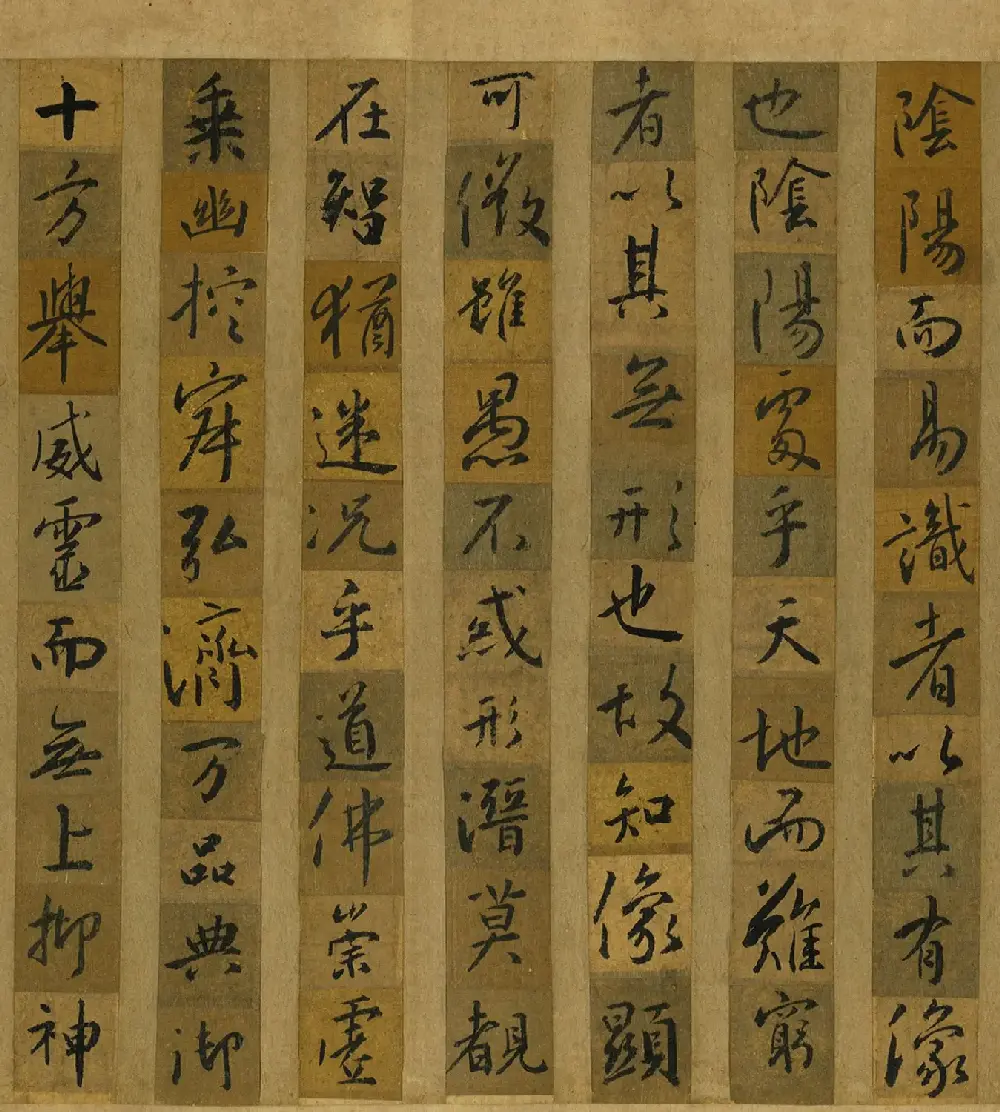 陰陽而易識者以其有像
也陰陽處乎天地而難窮
者以其無形也故知像顯
可徵雖愚不惑形潛莫覩
在智猶迷況乎道佛崇虛
乘幽控寂弘濟万品典御
十方舉威靈而無上抑神